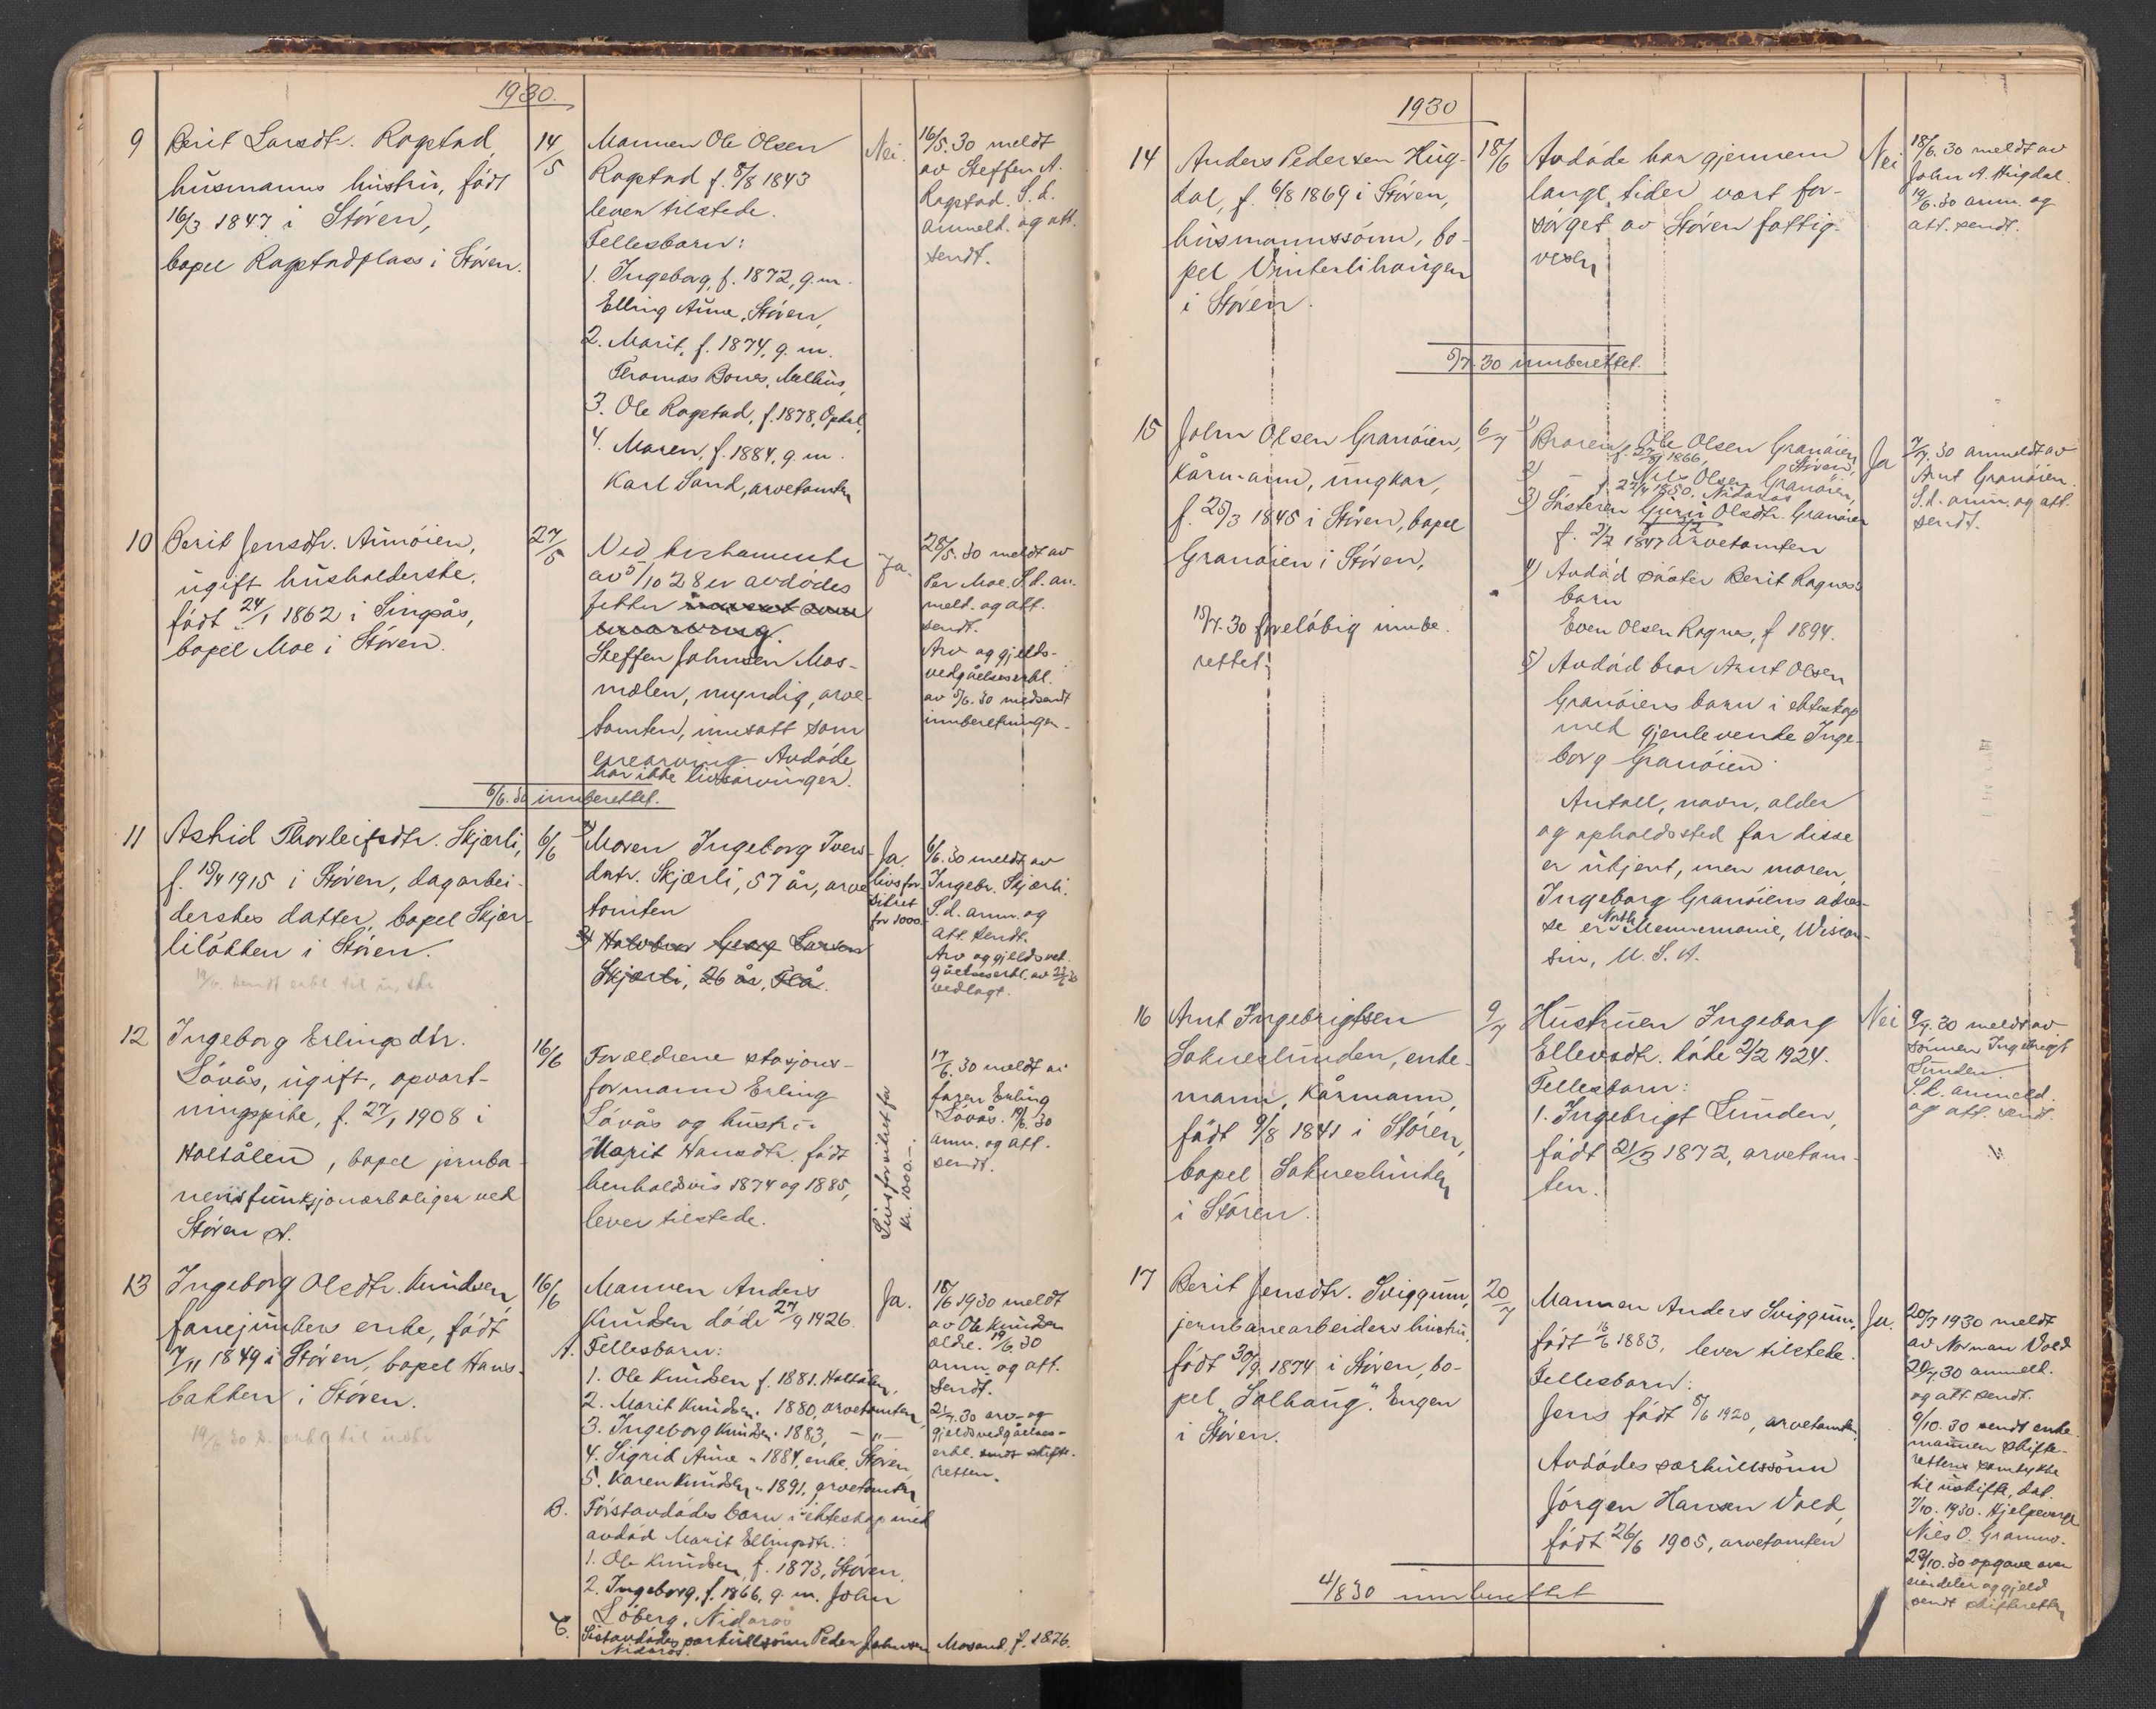 1930.
9
Berit Larsdtr. Rogstad,
husmanns hustru, født
16/3 1847 i Støren,
bopel Rogstadplass i Støren.
14/5
Mannen Ole Olsen
Rogstad f. 8/8 1843
lever tilstede.
Fellesbarn:
1. Ingeborg, f. 1872, g.m.
Elling Aune, Støren,
2. Marit, f. 1874, g.m.
Thomas Bones, Melhus,
3. Ole Rogstad, f. 1878, Opdal,
4. Maren, f. 1884, g.m.
Karl Sand, arvetomten
Nei.
16/5.30 meldt
av Steffen A.
Rogstad. S.d.
anmeld. og att.
sendt.
10
Berit Jensdtr. Aunøien,
ugift husholderske,
født 24/1 1862 i Singsås,
bopel Moe i Støren.
27/5
Ved testamente
av 5/10 28 er avdødes
fetter innsatt som
enearving.
Steffen Johnsen Mos-
mælen, myndig, arve-
tomten, innsatt som
enearving. Avdøde
har ikke livsarvinger.
Ja.
28/5.30 meldt av
Per Moe. S.d. an-
meld. og att.
sendt.
Arv og gjelds-
vedgåelseserkl.
av 5/6.30 medsendt
innberetningen.
6/6.30 innberettet.
11
Astrid Thorleifsdtr. Skjærli,
f. 15/4 1915 i Støren, dagarbei-
derskes datter, bopel Skjær-
liløkken i Støren.
6/6
1) Moren Ingeborg Ivers-
datr. Skjærli, 57 år, arve-
tomten
2) Halvbror Georg Larsen
Skjærli, 26 år, Flå.
Ja.
livsfor-
sikret
for 1000.-
6/6.30 meldt av
Ingebr. Skjærli.
S.d. anm. og
att. sendt.
Arv og gjeldsved-
gåelseserkl. av
vedlagt.
12
Ingeborg Erlingsdtr.
Løvås, ugift, opvart-
ningspike, f. 27/1 1908 i
Holtålen, bopel jernba-
nens funksjonærboliger ved
Støren st.
16/6
Forældrene stasjons-
formann Erling
Løvås og hustru
Marit Hansdtr. født
henholdsvis 1874 og 1885,
lever tilstede.
Livsforsikret for
kr. 1000.-
17/6.30 meldt av
faren Erling
Løvås. 19/6.30
anm. og att.
sendt.
13
Ingeborg Olsdtr. Knudsen,
fanejunkers enke, født
7/11 1849 i Støren, bopel Hans-
bakken i Støren.
16/6
Mannen Anders
Knudsen døde 27/9 1926.
A. Fellesbarn:
1. Ole Knudsen f. 1881. Holtålen,
2. Marit Knudsen " 1880, arvetomten,
3. Ingeborg Knudsen " 1883, - " -
4. Sigrid Aune " 1884, enke, Støren,
5. Karen Knudsen " 1891, arvetomten
B. Førstavdødes barn i ekteskap med
avdød Marit Ellingsdtr.:
1. Ole Knudsen, f. 1873, Støren.
2. Ingeborg, f. 1866, g.m. John
Løberg, Nidaros
C. Sistavdødes særkullssønn Peder Johnsen Mosand, f. 1876.
Nidaros.
Ja.
18/6 1930 meldt
av Ole Knudsen
eldre. 19/6.30
anm. og att.
sendt.
21/7.30 arv- og
gjeldsvedgåelses-
erkl. sendt skifte-
retten.
1930
14
Anders Pedersen Hug-
dal, f. 6/8 1869 i Støren,
husmannssønn, bo-
pel Vinterlihaugen
i Støren.
18/6
Avdøde har gjennem
lange tider vært for-
sørget av Støren fattig-
vesen
Nei
18/6.30 meldt av
John A. Hugdal.
19/6.30 anm. og
att. sendt.
5/7.30 innberettet.
15
John Olsen Granøien,
kårmann, ungkar,
f. 25/3 1845 i Støren, bopel
Granøien i Støren,
15/7.30 foreløbig innbe-
rettet.
6/7
1) Broren Ole Olsen Granøien
f. 27/9 1866, Støren,
2) - Nils Olsen Granøien,
f. 27/4 1850. Nidaros
3) Søsteren Guru Olsdtr. Granøien
f. 2/2 1847 arvetomten
4) Avdød søster Berit Rognes's
barn
Even Olsen Rognes, f 1894.
5) Avdød bror Arnt Olsen
Granøiens barn i ekteskap
med gjenlevende Inge-
borg Granøien.
Antall, navn, alder
og opholdssted for disse
er ukjent, men moren,
Ingeborg Granøiens adres-
se er North Mennemonie, Wiscon-
sin, U.S.A.
Ja
7/7.30 anmeldt av
Arnt Granøien.
S.d. anm. og att.
sendt.
16
Arnt Ingebrigtsen
Sokneslunden, enke-
mann, kårmann,
født 9/8 1841 i Støren,
bopel Sokneslunden
i Støren.
9/7
Hustruen Ingeborg
Ellevsdtr. døde 2/2 1924.
Fellesbarn:
1. Ingebrigt Lunden,
født 21/3 1872, arvetom-
ten.
Nei
9/7.30 meldt av
sønnen Ingebrigt
Lunden
S.d. anmeld.
og att. sendt.
17
Berit Jensdtr. Sviggum,
jernbanearbeiders hustru,
født 30/9 1874 i Støren, bo-
pel "Solhaug" Engen
i Støren.
20/7
Mannen Anders Sviggum,
født 16/6 1883, lever tilstede.
Fellesbarn:
Jens født 5/6 1920, arvetomten,
Avdødes særkullssønn
Jørgen Hansen Vold,
født 26/6 1905, arvetomten
Ja.
20/7 1930 meldt
av Norman Vold
20/7.30 anmeld.
og att. sendt.
9/10.30 sendt enke-
mannen skifte-
rettens samtykke
til uskifte, dat.
7/10.1930. Hjelpeverge
Nils O. Gramno.
23/10.30 opgave over
eiendeler og gjeld
sendt skifteretten
4/8 30 innberettet